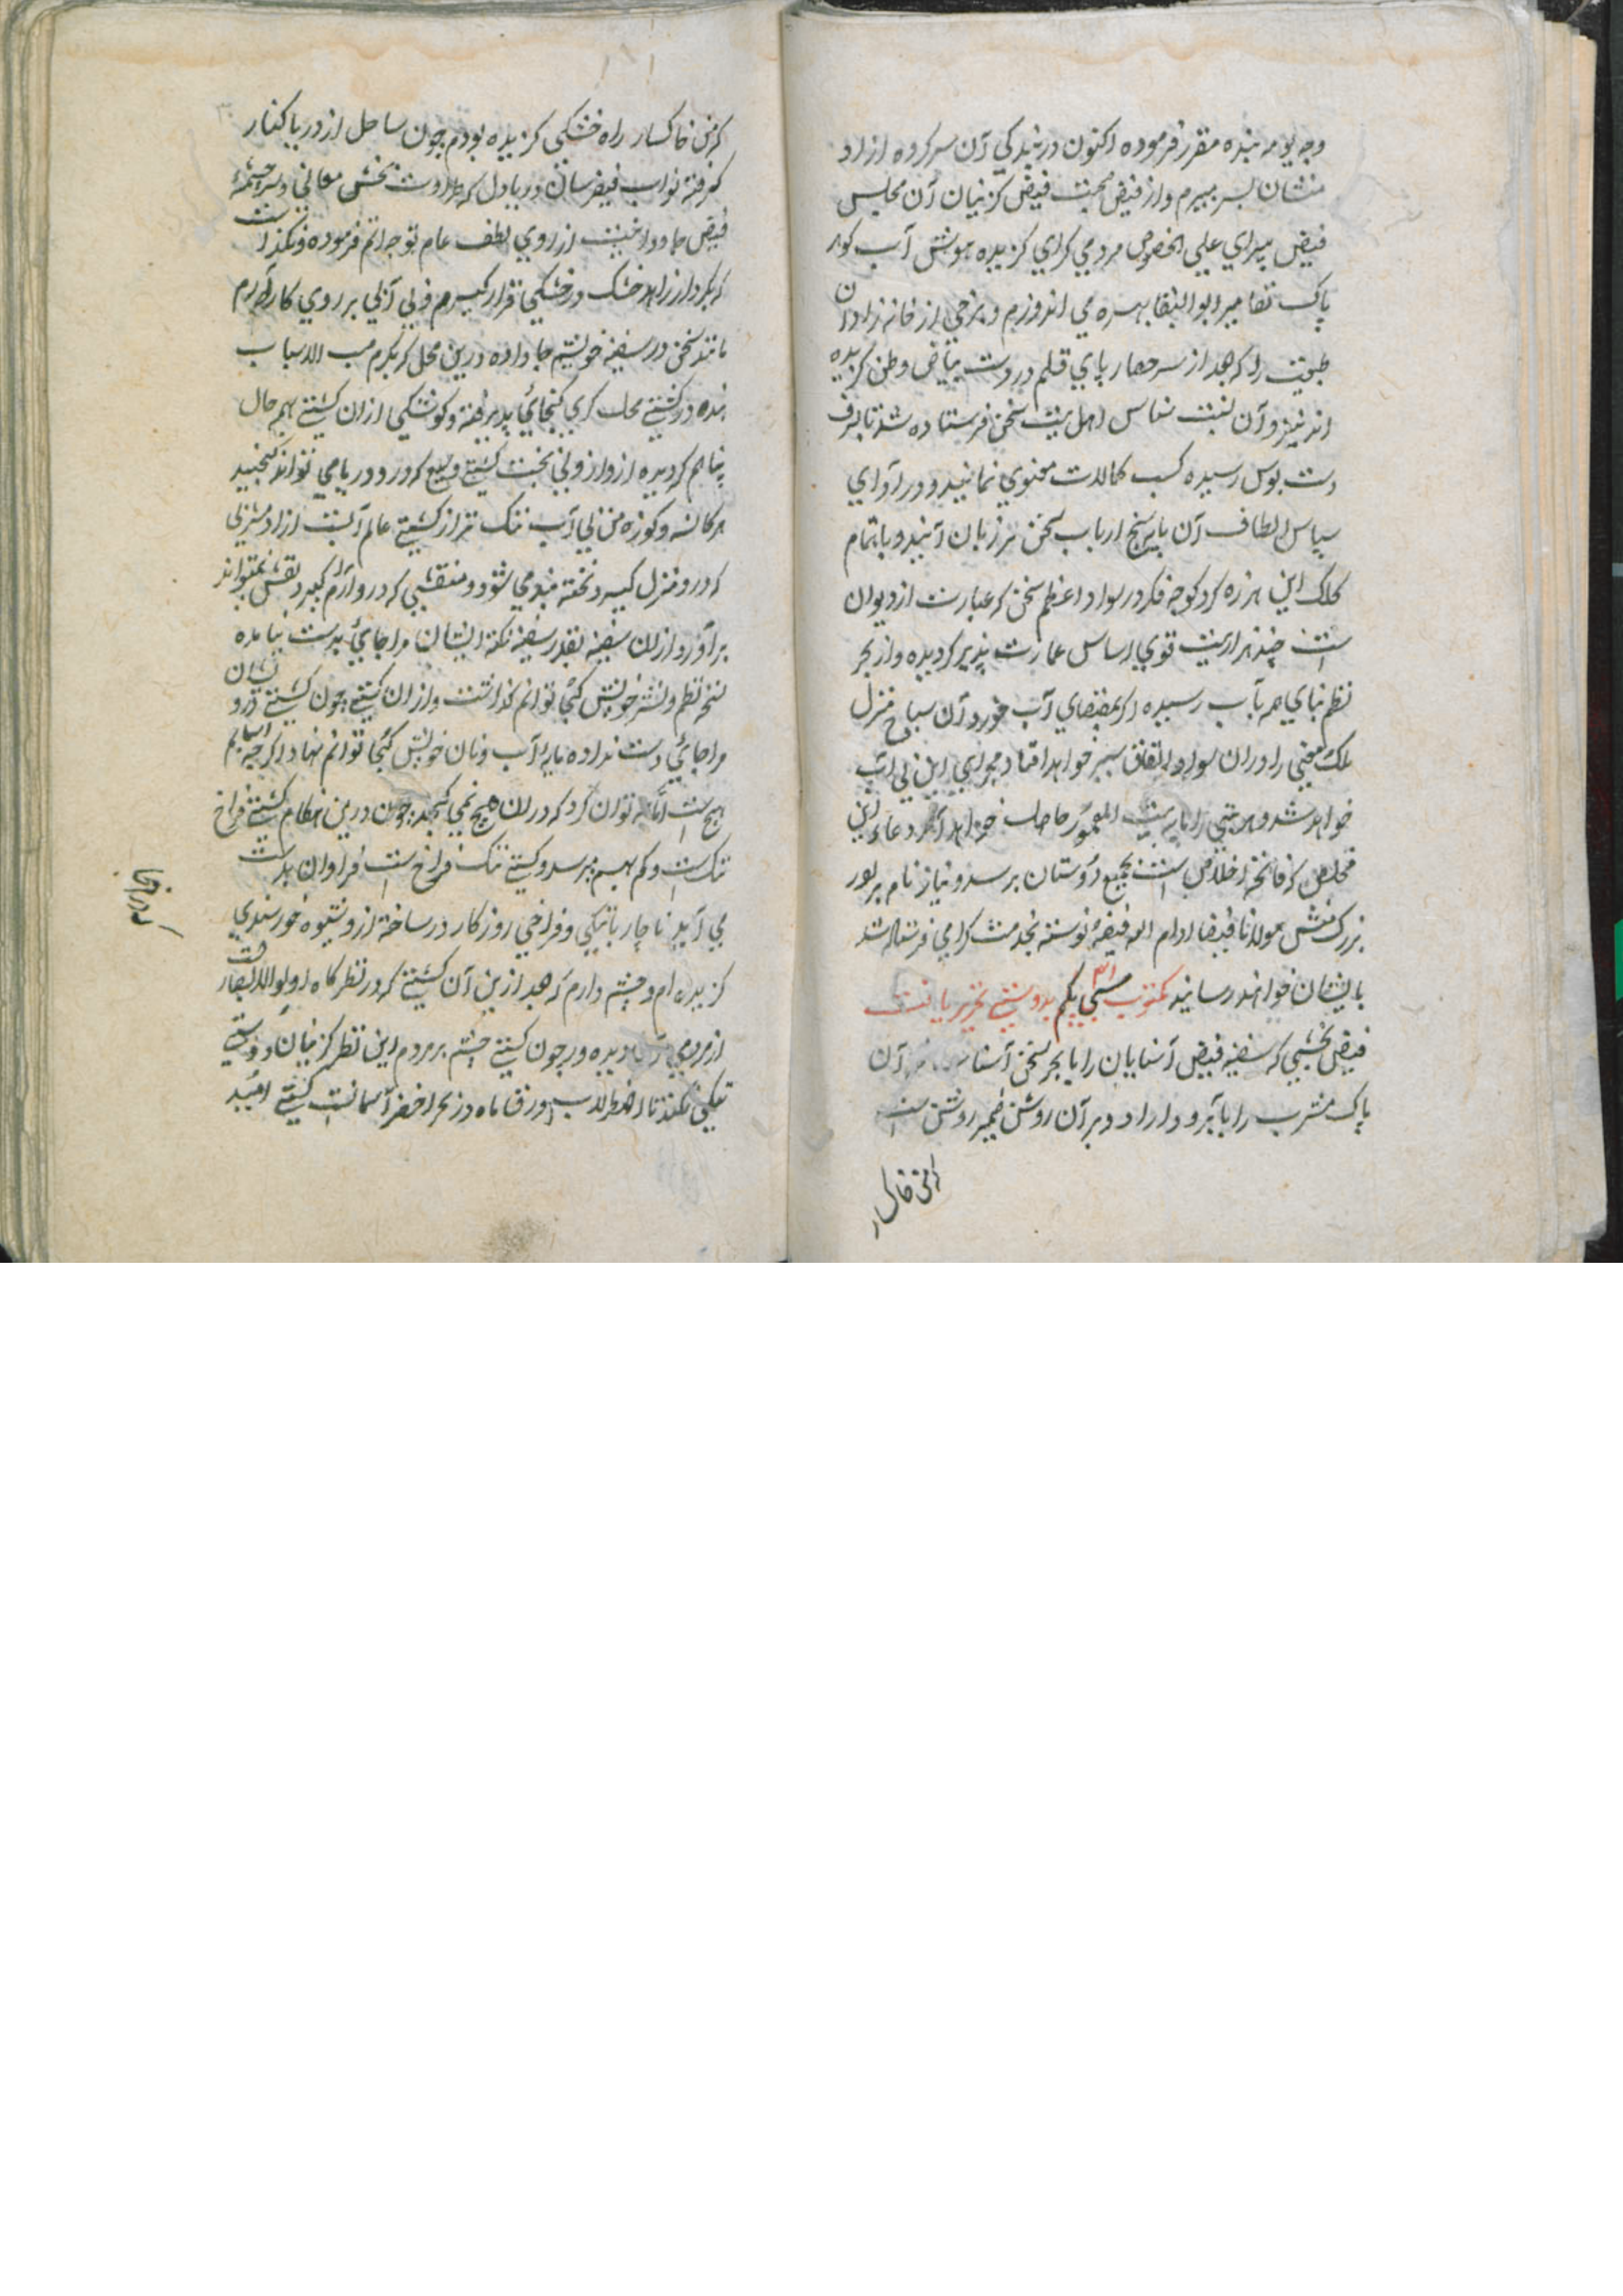 وجه یومیه بنده مقرر فرموده اکنون در بندکی آن سرکروه ازاد
منشان بسر میبرم و از فیض صحبت فیض کزینان آن مجلس
فیض پیرای علی الخصوص مردمی کرای کزیده هوش آب کوهر
پاک تقا میر ابو البقا بهره می اندوزم و برخی از خانه زادان
طبیعت را که بعد از سر حصار پای قلم در دشت بیاض وطن کزیده
اند نیز و آن نسبت شناس اهل بیت سخن فرستاده شد تا بشرف
دست بوس رسیده کسب کمالات معنوی نمایند و در ادای
سپاس الطاف آن پایه سنج ارباب سخن تر زبان آیند و باتمام
کلک این هرزه کرد کوچه فکر در سواد اعظم سخن که عبارت از دیوان
است چند هزار بیت قوی اساس عمارت پذیر کردیده و از بحر
نظم بنای همه بآب رسیده اکر بمقتضای آب خورد آن سیاح منزل
ملک معنی را در آن سواد اتفاق سیر خواهد افتاد مجرای این بی آب
خواهد شد و هر بیتی را پایه بیت المعمور حاصل خواهد آمد دعاء این
مخلص که فاتحه اخلاص است بجمیع دوستان برسد و نیاز نام بر لور
بزرک منش مولانا فیضا ادام الله فیضه نوشته بخدمت کرامی فرستاده شد
بایشان خواهند رسانید مکتوب سی یکم بدوستی تحریر یافت
فیض بخشی که سفینه فیض آشنایان را با بحر سخن آشنا آن
پاک مشرب را با آبرو دارد و بر آن روشن ضمیر روشن است
که من خاکسار
که من خاکسار راه خشکی کزیده بودم چون ساحل از دریا کنار
کرفته نواب فیض رسان دریا دل که طراوت بخش معانی و سرچشمه
فیض جاودانیست از روی لطف عام توجه اتم فرموده و نکذاشت
که بکردار زاهد خشک در خشکی قرار کیرم و بی آبی بر روی کار آرم
مانند سخن در سفینه خویشم جا داده درین محل که بکرم مسبب الاسباب
بنده در کشتی محل کرای کنجائی پذیرفته و کوشکی از ان کشتی بهر حال
پناهم کردیده از واژونی بخت کشتی وسیع که در و دریا می تواند کنجید
هر کاسه و کوزه من بی آب تنک تر از کشتی عالم آبست از اد منزلی
که در و منزل کیرد تخته بند می شود و منقبتی که در و آرام کیرد نفس نمیتواند
برآورد از ان سفینه بقدر سفینه نکته ایشان مرا جایی بدست نیامده
نسخه نظم و نثر خویش کجا توانم کذاشت و از ان کشتی چون کشتی نشان
مرا جائی دست نداده مایه آب و نان خویش کجا توانم نهاد اکر چه اسبابم
هیچ است اما چه توان کرد که در ان هیچ نمی کنجد چون درین هنکام کشتی فراخ
تنک است و کم بهم میرسد و کشتی تنک فراخ است فراوان بدست
می آید ناچار با تنکی و فراخی روزکار در ساخته از و شیوه خورسندی
کزیده ام و چشم دارم که بعد ازین آن کشتی که در نظر کاه اولو الابصار
از مردمی دیده ور چون کشتی چشم بر مردم این نظر کزینان دوستی
تنکی نکند تا اضطراب زورق ماه در بحر اخضر آسمانست کشتی امید